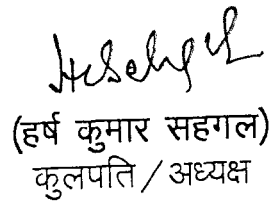 (हर्ष कुमार सहगल)
कुलपति / अध्यक्ष